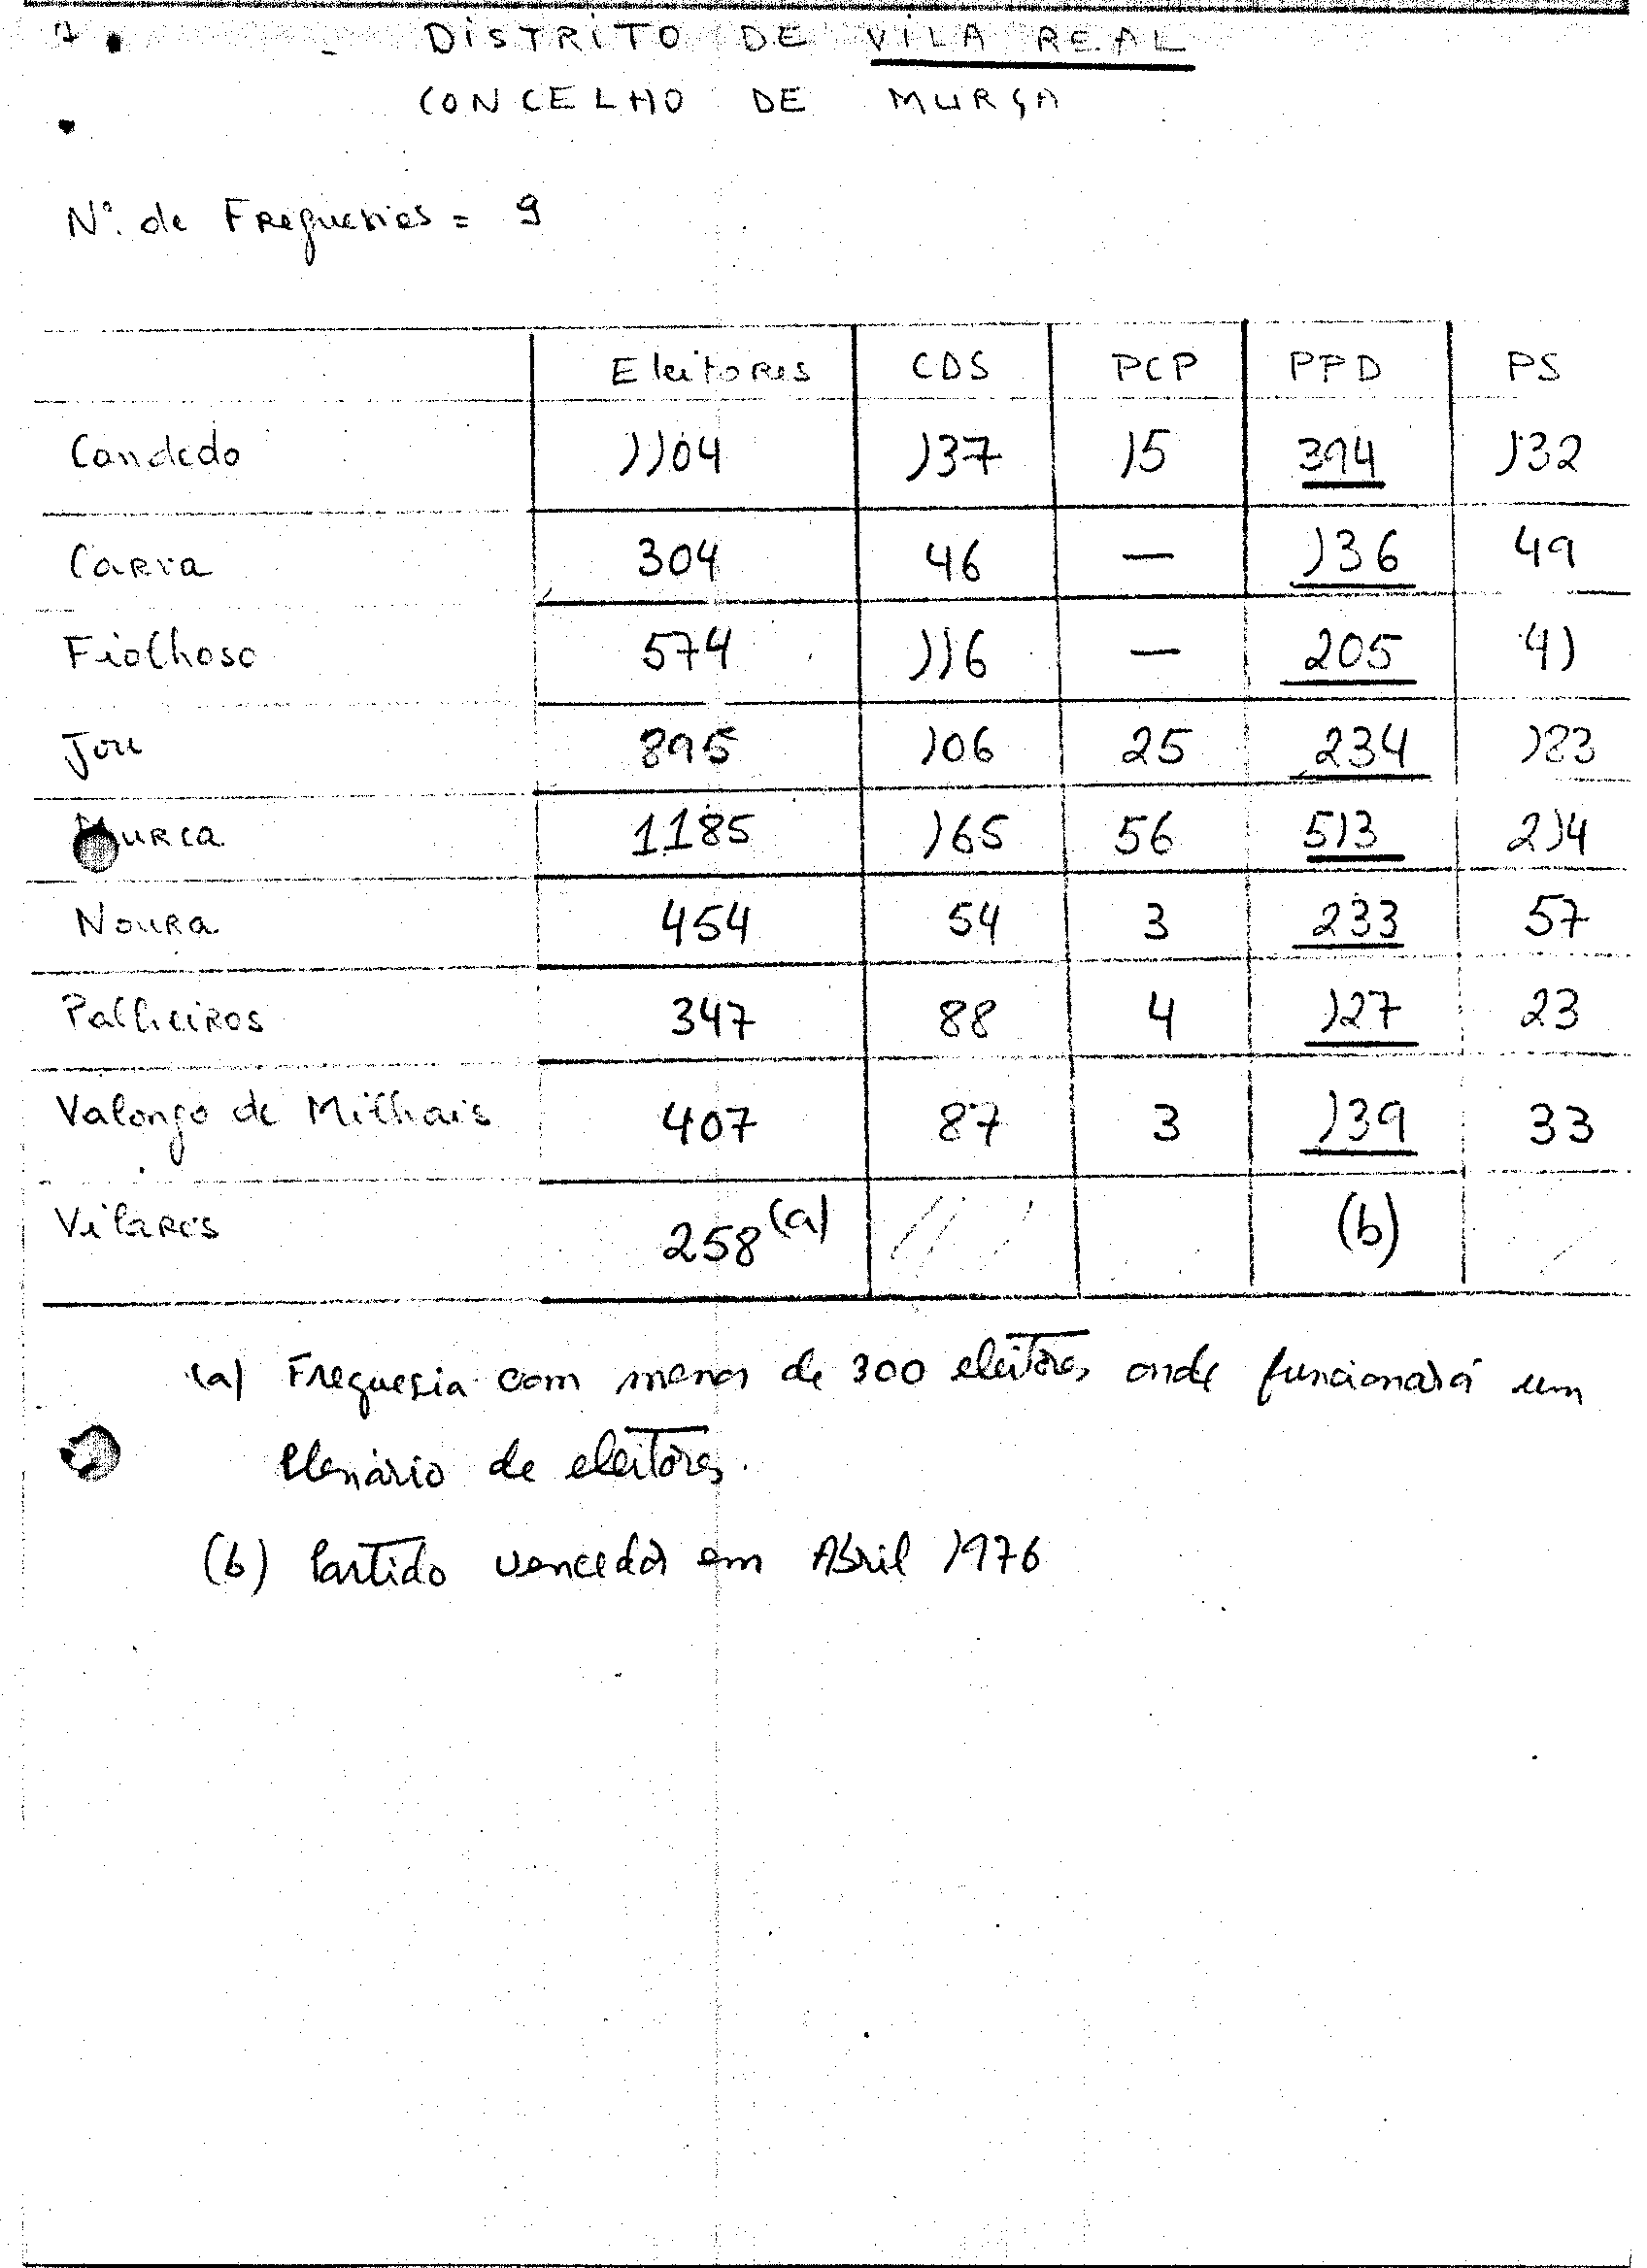 7.
DISTRITO DE VILA REAL
CONCELHO DE MURÇA
Nº. de Freguesias = 9
Eleitores CDS PCP PPD PS
Candedo 1104 137 15 394 132
Carva 304 46 — 136 49
Fiolhoso 574 116 — 205 41
Jou 895 106 25 234 183
Murca 1185 165 56 513 214
Noura 454 54 3 233 57
Palheiros 347 88 4 127 23
Valongo de Milhais 407 87 3 139 33
Vilares 258 (a) (b)
(a) Freguesia com menos de 300 eleitores onde funcionará um
Plenário de eleitores.
(b) Partido vencedor em Abril 1976